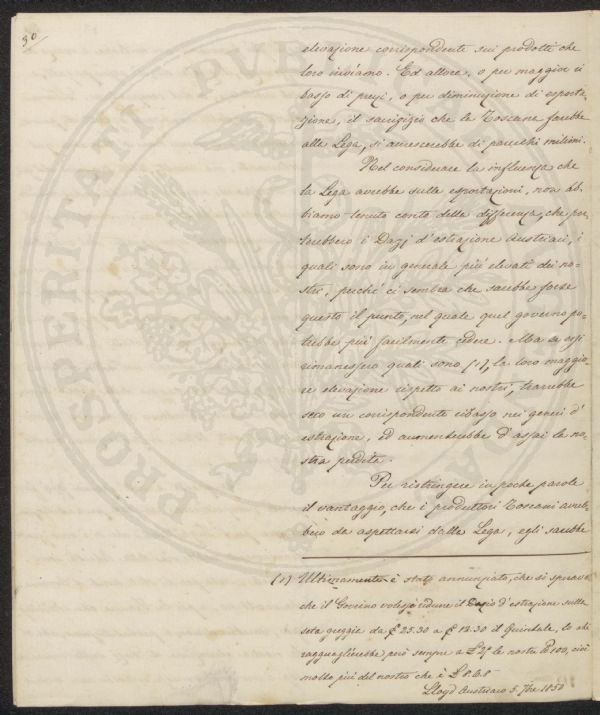 30/
elevazione corrispondente sui prodotti che
loro inviamo. Ed allora, o per maggior ri
basso di prezzi, o per diminuzione di esporta-
zione, il sacrifizio che la Toscana farebbe
alla Lega, si accrescerebbe di parecchi milioni.
Nel considerare la influenza che
la Lega avrebbe sulle esportazioni, non ab-
biamo tenuto conto della differenza, che por-
terebbero i Dazj d'estrazione Austriaci, i
quali sono in generale più elevati dei no-
stri, perché ci sembra che sarebbe forse
questo il punto, nel quale quel governo po-
trebbe più facilmente cedere. Ma se essi
rimanessero quali sono (1), la loro maggio-
re elevazione rispetto ai nostri, trarrebbe
seco un corrispondente ribasso nei generi d'
estrazione, ed aumenterebbe d'assai la no-
stra perdita.
Per ristringere in poche parole
il vantaggio, che i produttori Toscani avreb-
bero da aspettarsi dalla Lega, egli sarebbe
(1) Ultimamente è stato annunziato, che si sperava
che il Governo volesse ridurre il Dazio d'estrazione sulla
seta greggia da £ 25.30 a £ 12.30 il Quintale, lo che
ragguaglierebbe però sempre a £ 24 le nostre 100, cioè
molto più del nostro che è £ 8.6.8
Lloyd Austriaco 5. 7bre 1850
PROSPERITATI PUBLI